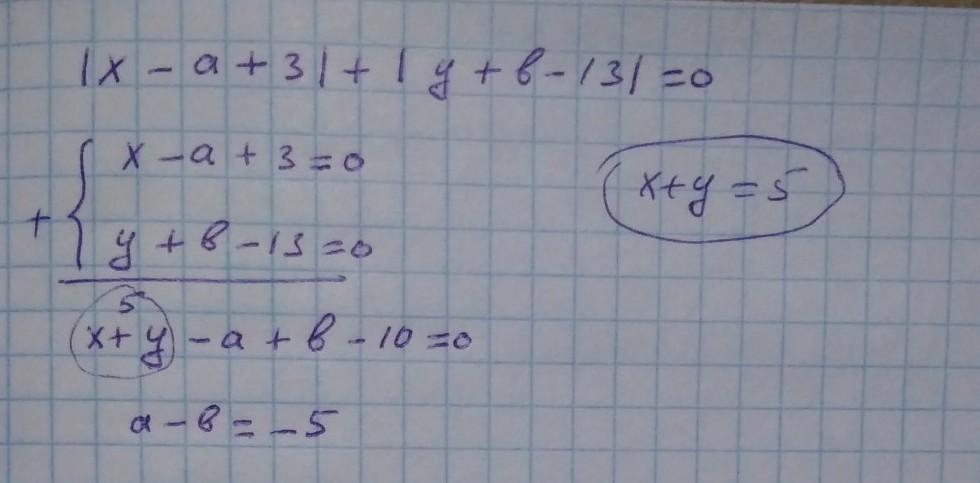 |x - a + 3| + |y + b - 13| = 0
x - a + 3 = 0
x + y = 5
+
y + b - 13 = 0
5
x + y - a + b - 10 = 0
a - b = -5